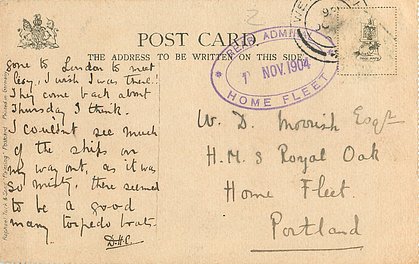 POST CARD
THE ADDRESS TO BE WRITTEN ON THIS SIDE
READ. ADMI
1 NOV. 1904
HOME FLEET
gone to London to meet
Leay, I wish I was there!
They come back about
Thursday I think.
I couldn't see much
of the ships on
my way out, as it was
so misty, there seemed
to be a good
many torpedo boats.
D.H.C.
W. D. Morrish Esqre
H.M.S Royal Oak
Home Fleet.
Portland